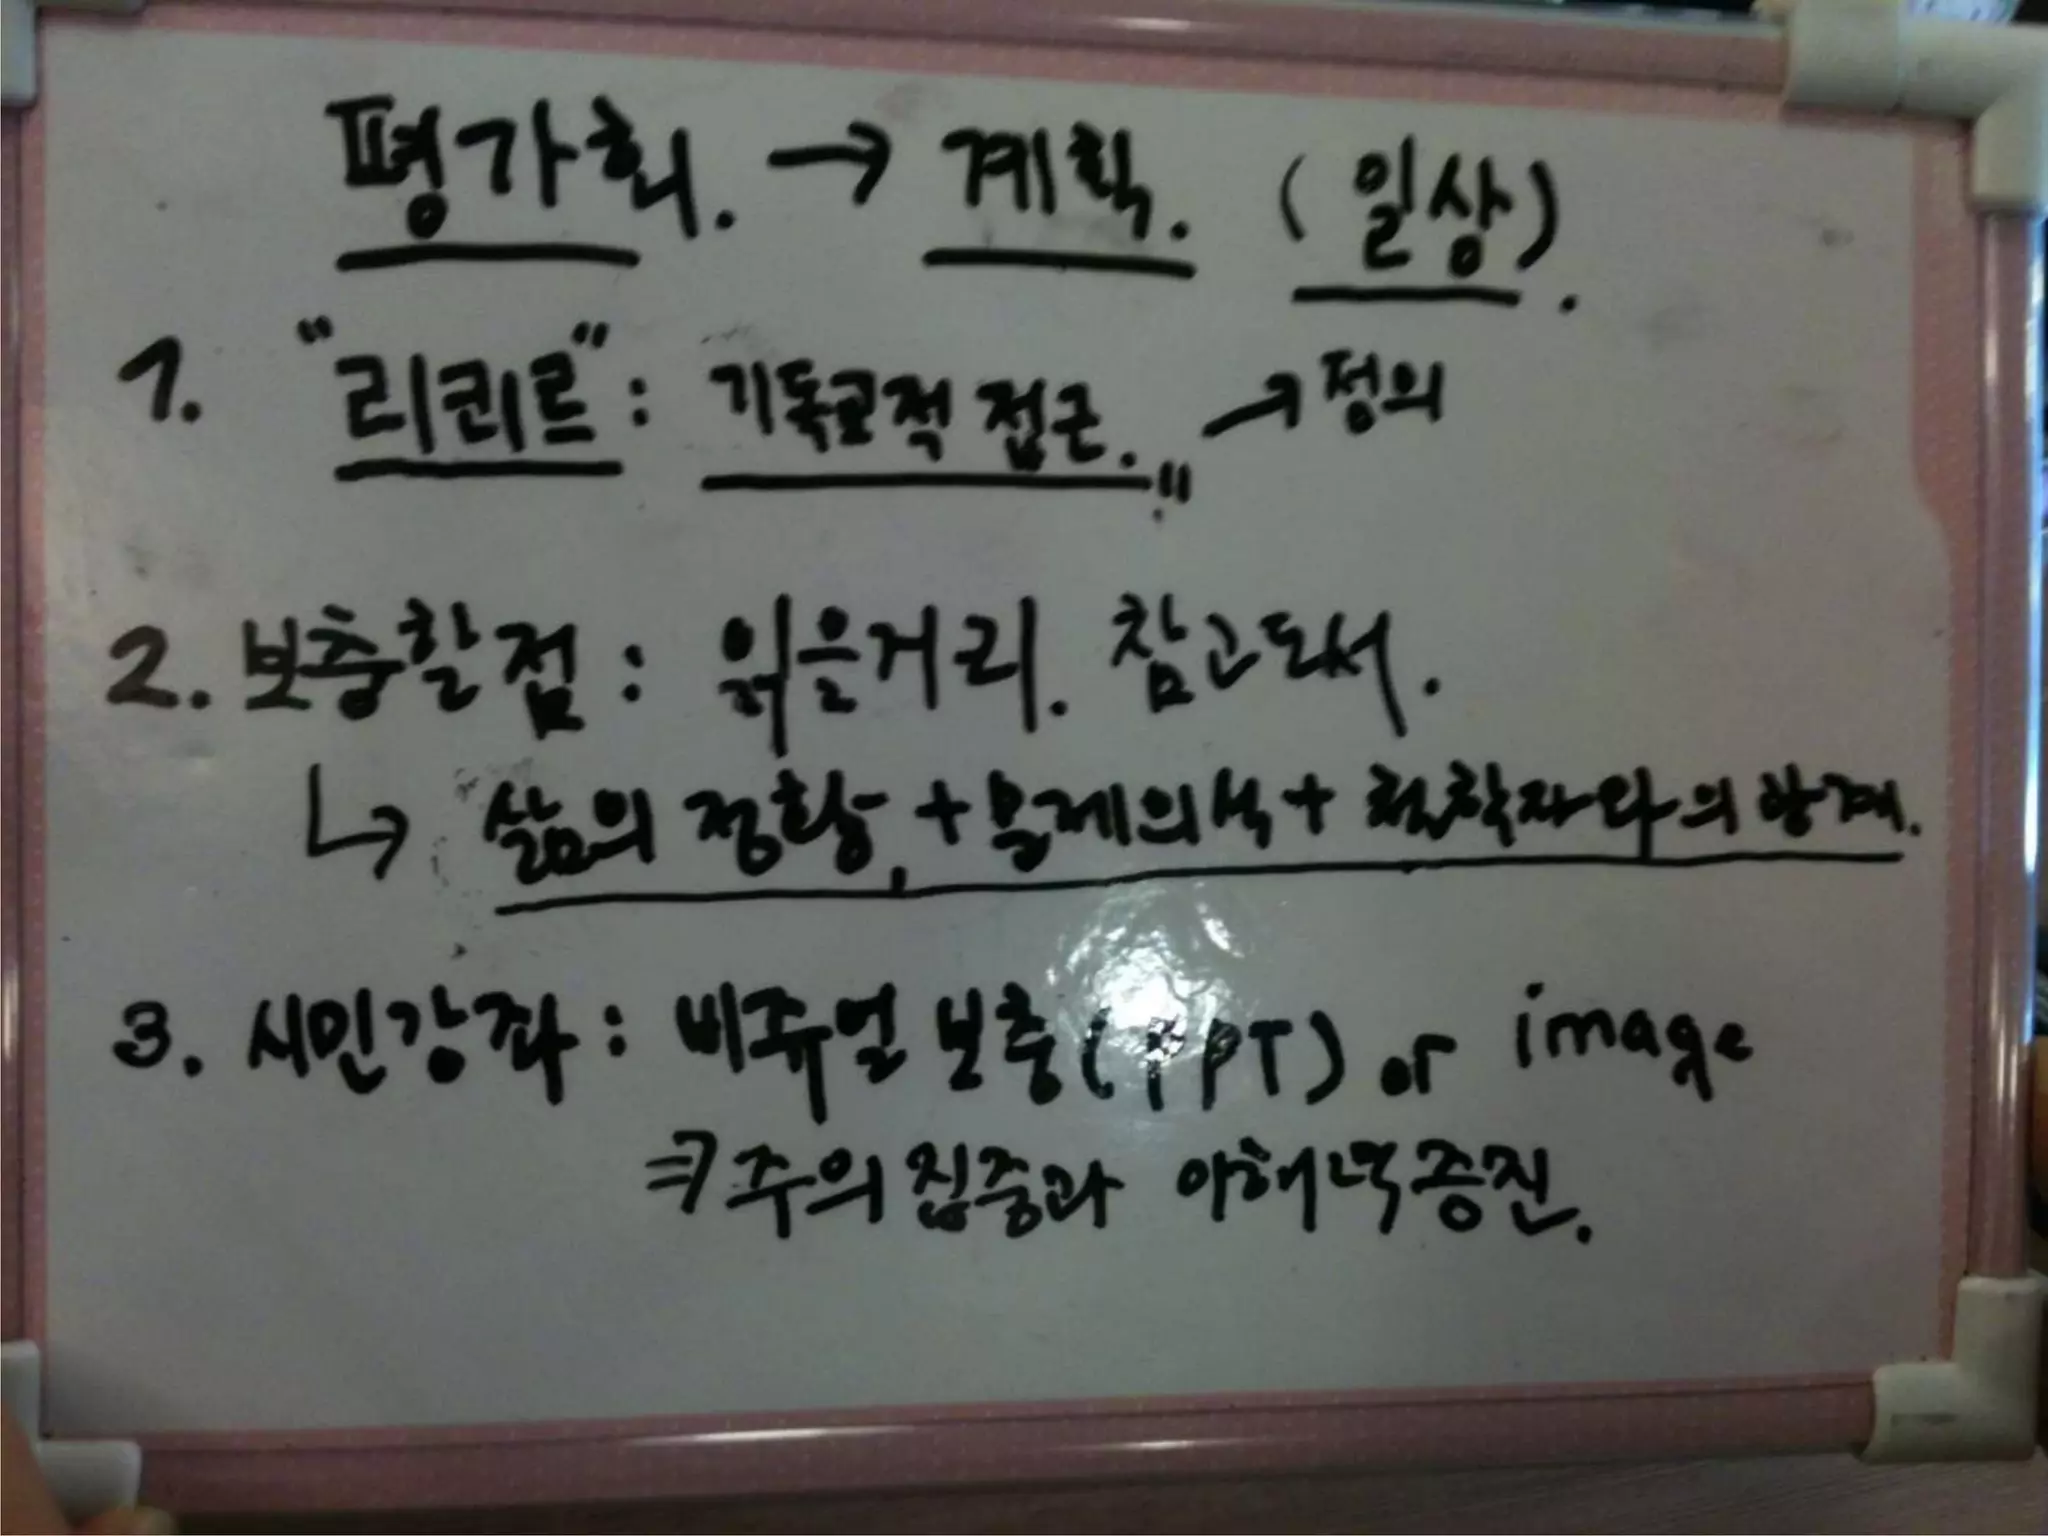 평가회. → 계획. (일상).
1. "리쾨르" : 기독교적 접근." → 정의
2. 보충할점 : 읽을거리. 참고도서.
↳ 삶의 정황, + 문제의식 + 철학자와의 한계.
3. 시민강좌 : 비쥬얼 보충(PPT) or image
⇒ 주의 집중과 이해 증진.